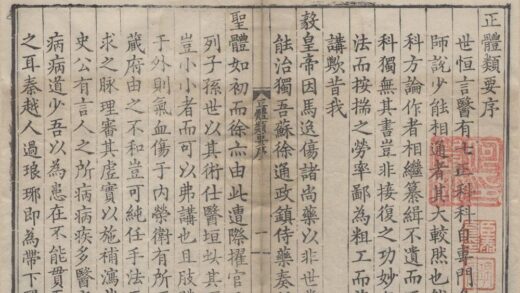 正體類要序
世恒言醫有七正科科自專門各
師說少能相通者其大較然也然
科方論作者相繼纂緝不遺而正
科獨無其書豈非接復之功妙
法而按揣之勞率鄙為粗工而
講歟昔我
毅皇帝因馬逸傷諸尚藥以非世
能治獨吾蘇徐通政鎮侍藥奏
正體類要序
一
聖體如初而徐亦由此遭際擢官
列子孫世以其術仕醫垣斯其
豈小小者而可以弗講也且肢體
于外則氣血傷于內榮衛有所
藏府由之不和豈可純任手法而
求之脉理審其虛實以施補瀉
史公有言人之所病病疾多醫
病病道少吾以為患在不能貫
之耳秦越人過琅琊即為帶下